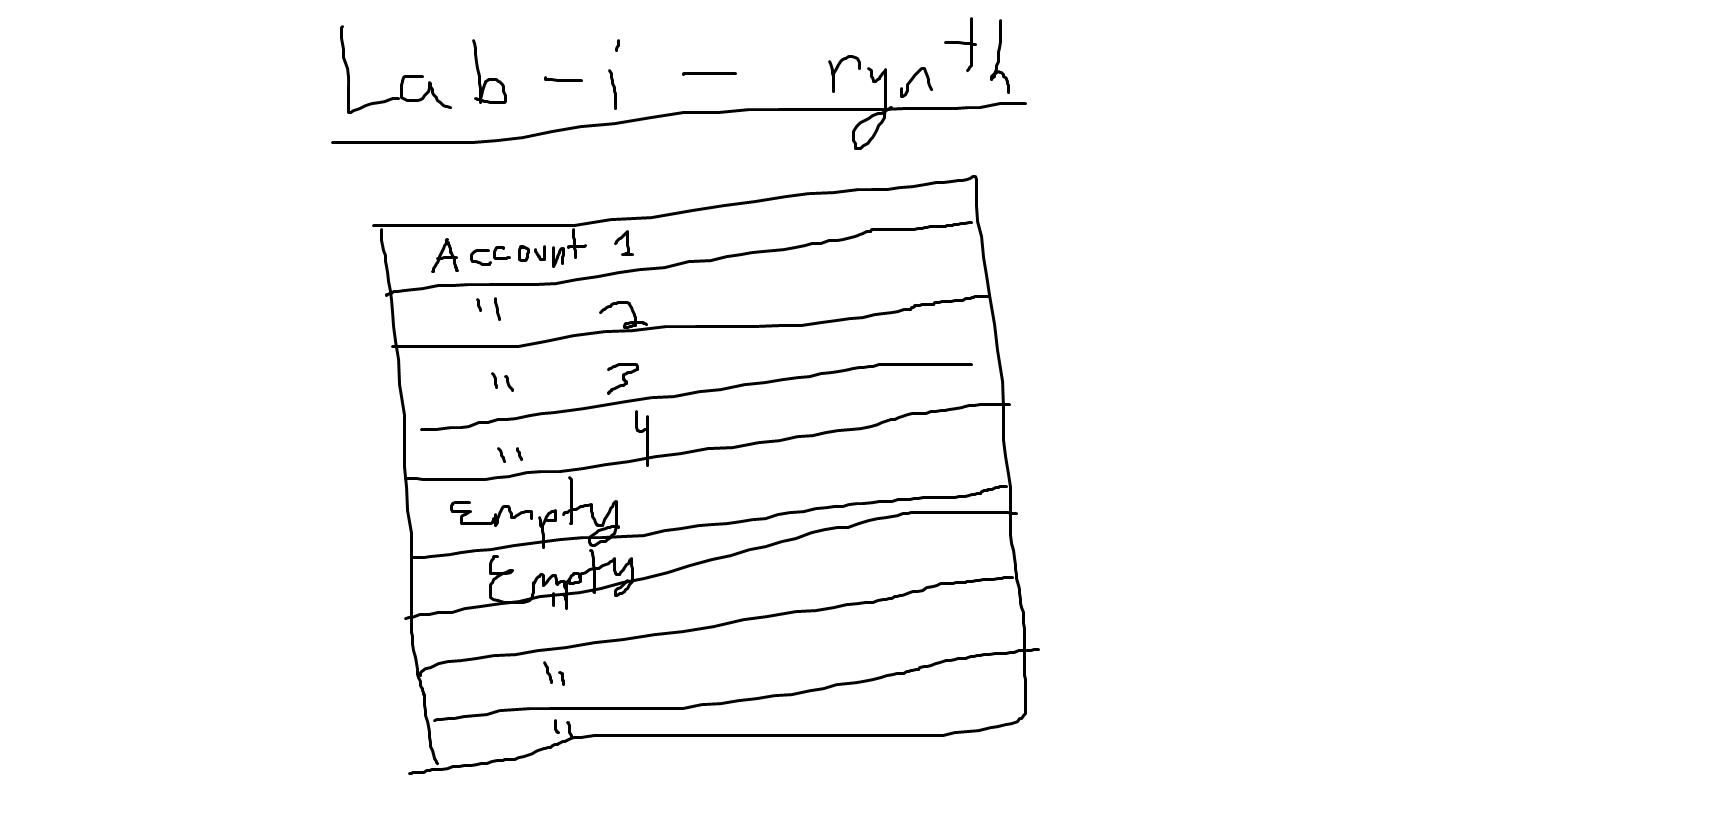 Lab-i-rynth
Account 1
" 2
" 3
" 4
Empty
Empty
"
"
"